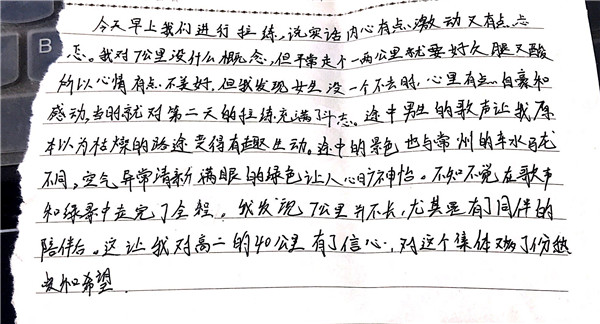 今天早上我们进行拉练。说实话内心有点激动又有点忐
忑。我对7公里没什么概念,但平常走个一两公里就要好久腿又酸
所以心情有点不美好。但我发现女生没一个不去时,心里有点自豪和
感动,当时就对第二天的拉练充满了斗志。途中男生的歌声让我原
本以为枯燥的路途变得有趣生动。途中的景色也与常州的车水马龙
不同,空气异常清新满眼的绿色让人心旷神怡。不知不觉在歌声
和绿景中走完了全程。我发现7公里并不长,尤其是有了同伴的
陪伴后。这让我对高二的40公里有了信心,对这个集体多了份热
爱和希望.
B